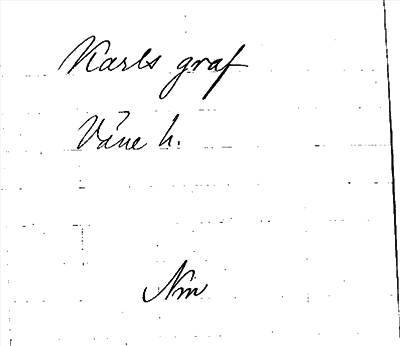 Karls graf
Våne h.
Nm